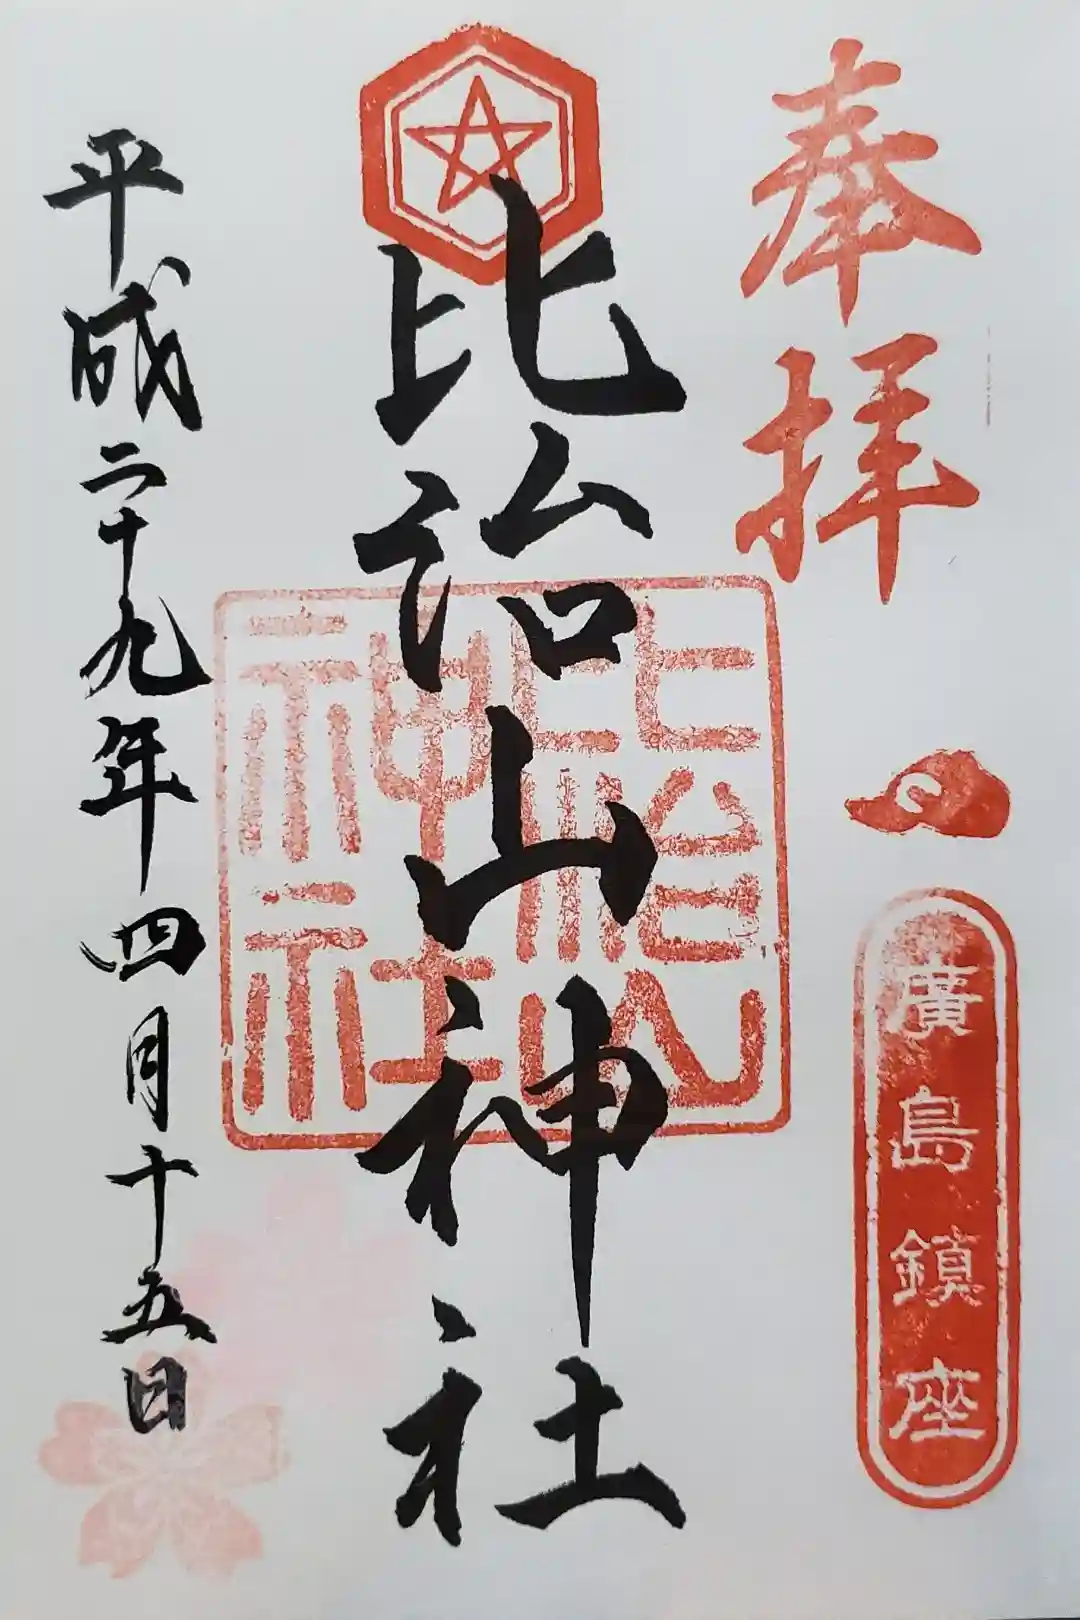 奉拝
廣島鎮座
比治山神社
比治山
神社
平成二十九年四月十五日